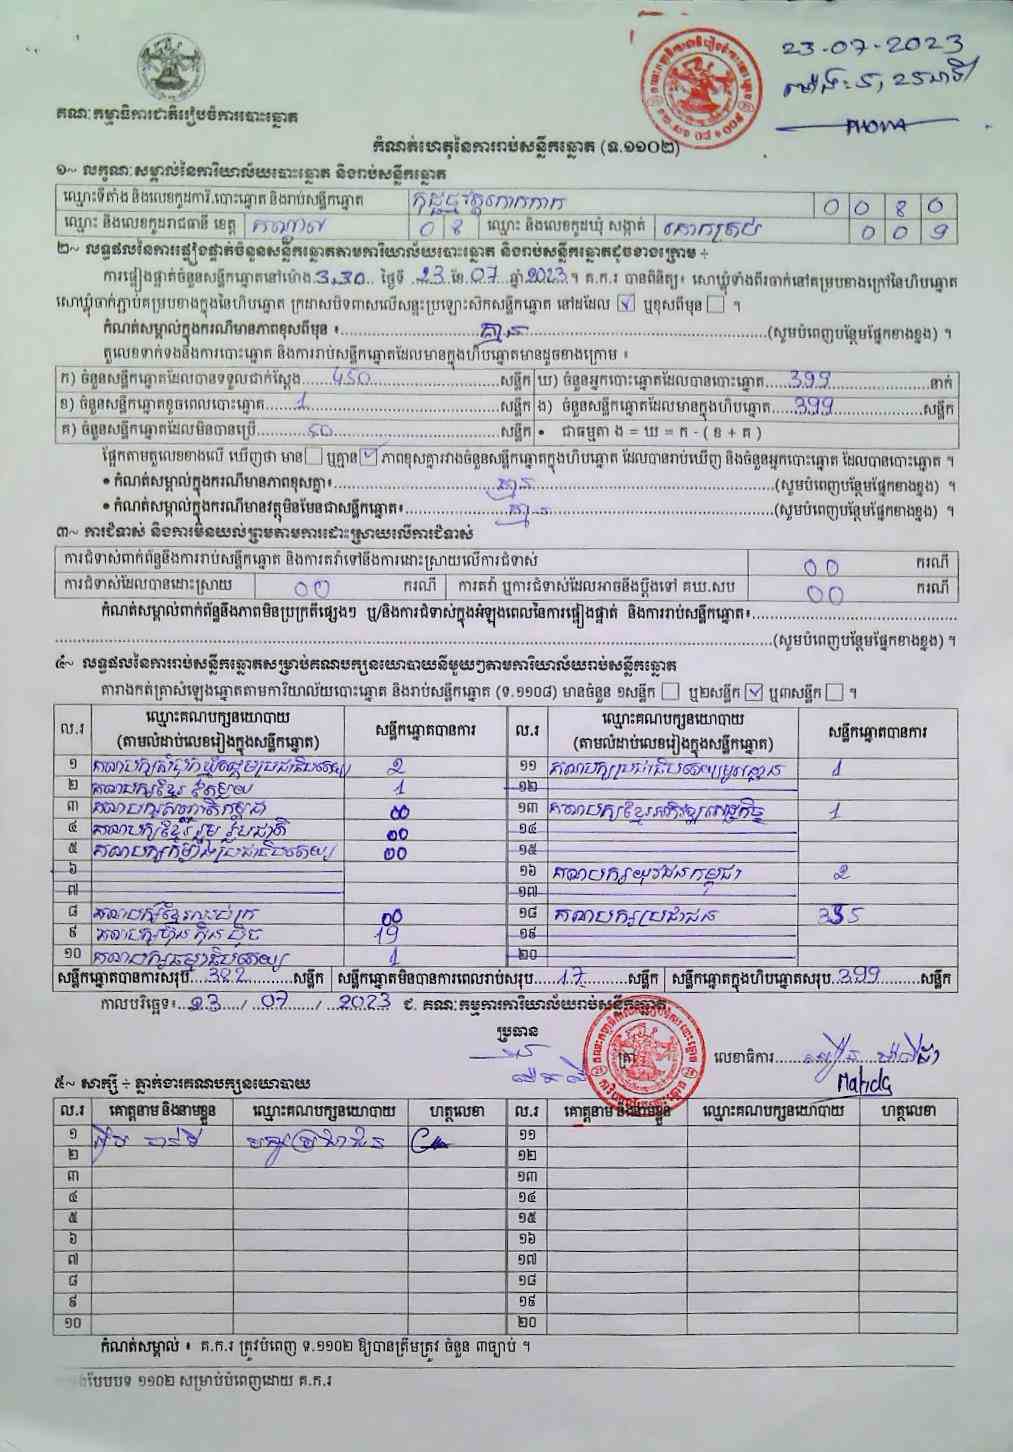 23-07-2023
គណៈកម្មាធិការជាតិរៀបចំការបោះឆ្នោត
កំណត់ហេតុនៃការរាប់សន្លឹកឆ្នោត (ទ.១១០២)
១~ លក្ខណៈសម្គាល់នៃការិយាល័យបោះឆ្នោត និងរាប់សន្លឹកឆ្នោត
ឈ្មោះទីតាំង និងលេខកូដការិ.បោះឆ្នោត និងរាប់សន្លឹកឆ្នោត 0 0 8 0
ឈ្មោះ និងលេខកូដរាជធានី ខេត្ត កណ្ដាល 0 8 ឈ្មោះ និងលេខកូដឃុំ សង្កាត់ 0 0 9
២~ លទ្ធផលនៃការផ្ទៀងផ្ទាត់ចំនួនសន្លឹកឆ្នោតតាមការិយាល័យបោះឆ្នោត និងរាប់សន្លឹកឆ្នោតដូចខាងក្រោម ÷
ការផ្ទៀងផ្ទាត់ចំនួនសន្លឹកឆ្នោតនៅម៉ោង 3,30 ថ្ងៃទី 23 ខែ 07 ឆ្នាំ 2023 ។ គ.ក.រ បានពិនិត្យ៖ សោឃ្លុំទាំងពីរចាក់នៅគម្របខាងក្រៅនៃហិបឆ្នោត
សោឃ្លុំចាក់ភ្ជាប់គម្របខាងក្នុងនៃហិបឆ្នោត ក្រដាសបិទពាសលើសន្ទះប្រឡោះសិកសន្លឹកឆ្នោត នៅដដែល ☑ ឬខុសពីមុន ☐ ។
កំណត់សម្គាល់ក្នុងករណីមានភាពខុសពីមុន ៖ គ្មាន (សូមបំពេញបន្ថែមផ្នែកខាងខ្នង) ។
តួលេខទាក់ទងនឹងការបោះឆ្នោត និងការរាប់សន្លឹកឆ្នោតដែលមានក្នុងហិបឆ្នោតមានដូចខាងក្រោម ៖
ក) ចំនួនសន្លឹកឆ្នោតដែលបានទទួលជាក់ស្តែង 450 សន្លឹក ឃ) ចំនួនអ្នកបោះឆ្នោតដែលបានបោះឆ្នោត 399 នាក់
ខ) ចំនួនសន្លឹកឆ្នោតខូចពេលបោះឆ្នោត 1 សន្លឹក ង) ចំនួនសន្លឹកឆ្នោតដែលមានក្នុងហិបឆ្នោត 399 សន្លឹក
គ) ចំនួនសន្លឹកឆ្នោតដែលមិនបានប្រើ 50 សន្លឹក • ជាធម្មតា ង = ឃ = ក - ( ខ + គ )
ផ្អែកតាមតួលេខខាងលើ ឃើញថា មាន ☐ ឬគ្មាន ☑ ភាពខុសគ្នារវាងចំនួនសន្លឹកឆ្នោតក្នុងហិបឆ្នោត ដែលបានរាប់ឃើញ និងចំនួនអ្នកបោះឆ្នោត ដែលបានបោះឆ្នោត ។
• កំណត់សម្គាល់ក្នុងករណីមានភាពខុសគ្នា៖ គ្មាន (សូមបំពេញបន្ថែមផ្នែកខាងខ្នង) ។
• កំណត់សម្គាល់ក្នុងករណីមានវត្ថុមិនមែនជាសន្លឹកឆ្នោត៖ គ្មាន (សូមបំពេញបន្ថែមផ្នែកខាងខ្នង) ។
៣~ ការជំទាស់ និងការមិនយល់ព្រមតាមការដោះស្រាយលើការជំទាស់
ការជំទាស់ពាក់ព័ន្ធនឹងការរាប់សន្លឹកឆ្នោត និងការតវ៉ាទៅនឹងការដោះស្រាយលើការជំទាស់ 00 ករណី
ការជំទាស់ដែលបានដោះស្រាយ 00 ករណី ការតវ៉ា ឬការជំទាស់ដែលអាចនឹងប្តឹងទៅ គឃ.សប 00 ករណី
កំណត់សម្គាល់ពាក់ព័ន្ធនឹងភាពមិនប្រក្រតីផ្សេងៗ ឬ/និងការជំទាស់ក្នុងអំឡុងពេលនៃការផ្ទៀងផ្ទាត់ និងការរាប់សន្លឹកឆ្នោត៖
(សូមបំពេញបន្ថែមផ្នែកខាងខ្នង) ។
៤~ លទ្ធផលនៃការរាប់សន្លឹកឆ្នោតសម្រាប់គណបក្សនយោបាយនីមួយៗតាមការិយាល័យរាប់សន្លឹកឆ្នោត
តារាងកត់ត្រាសំឡេងឆ្នោតតាមការិយាល័យបោះឆ្នោត និងរាប់សន្លឹកឆ្នោត (ទ.១១០៨) មានចំនួន ១សន្លឹក ☐ ឬ២សន្លឹក ☑ ឬ៣សន្លឹក ☐ ។
ល.រ ឈ្មោះគណបក្សនយោបាយ (តាមលំដាប់លេខរៀងក្នុងសន្លឹកឆ្នោត) សន្លឹកឆ្នោតបានការ ល.រ ឈ្មោះគណបក្សនយោបាយ (តាមលំដាប់លេខរៀងក្នុងសន្លឹកឆ្នោត) សន្លឹកឆ្នោតបានការ
១ 2 ១១ 1
២ គណបក្សខ្មែរ 1 ១២
៣ 00 ១៣ 1
៤ គណបក្សខ្មែររួបរួមជាតិ 00 ១៤
៥ គណបក្សកម្លាំងប្រជាធិបតេយ្យ 00 ១៥
៦ ១៦ គណបក្សយុវជនកម្ពុជា 2
៧ ១៧
៨ គណបក្សខ្មែរឈប់ក្រ 00 ១៨ គណបក្សប្រជាជន 355
៩ គណបក្សហ្វ៊ុនស៊ិនប៉ិច 19 ១៩
១០ គណបក្សធម្មាធិបតេយ្យ 1 ២០
សន្លឹកឆ្នោតបានការសរុប 382 សន្លឹក សន្លឹកឆ្នោតមិនបានការពេលរាប់សរុប 17 សន្លឹក សន្លឹកឆ្នោតក្នុងហិបឆ្នោតសរុប 399 សន្លឹក
កាលបរិច្ឆេទ៖ 23 / 07 / 2023 ជ. គណៈកម្មការការិយាល័យរាប់សន្លឹកឆ្នោត
ប្រធាន
ត្រា លេខាធិការ
៥~ សាក្សី ÷ ភ្នាក់ងារគណបក្សនយោបាយ
ល.រ គោត្តនាម និងនាមខ្លួន ឈ្មោះគណបក្សនយោបាយ ហត្ថលេខា ល.រ គោត្តនាម និងនាមខ្លួន ឈ្មោះគណបក្សនយោបាយ ហត្ថលេខា
១ បក្សប្រជាជន ១១
២ ១២
៣ ១៣
៤ ១៤
៥ ១៥
៦ ១៦
៧ ១៧
៨ ១៨
៩ ១៩
១០ ២០
កំណត់សម្គាល់ ៖ គ.ក.រ ត្រូវបំពេញ ទ.១១០២ ឱ្យបានត្រឹមត្រូវ ចំនួន ៣ច្បាប់ ។
បែបបទ ១១០២ សម្រាប់បំពេញដោយ គ.ក.រ